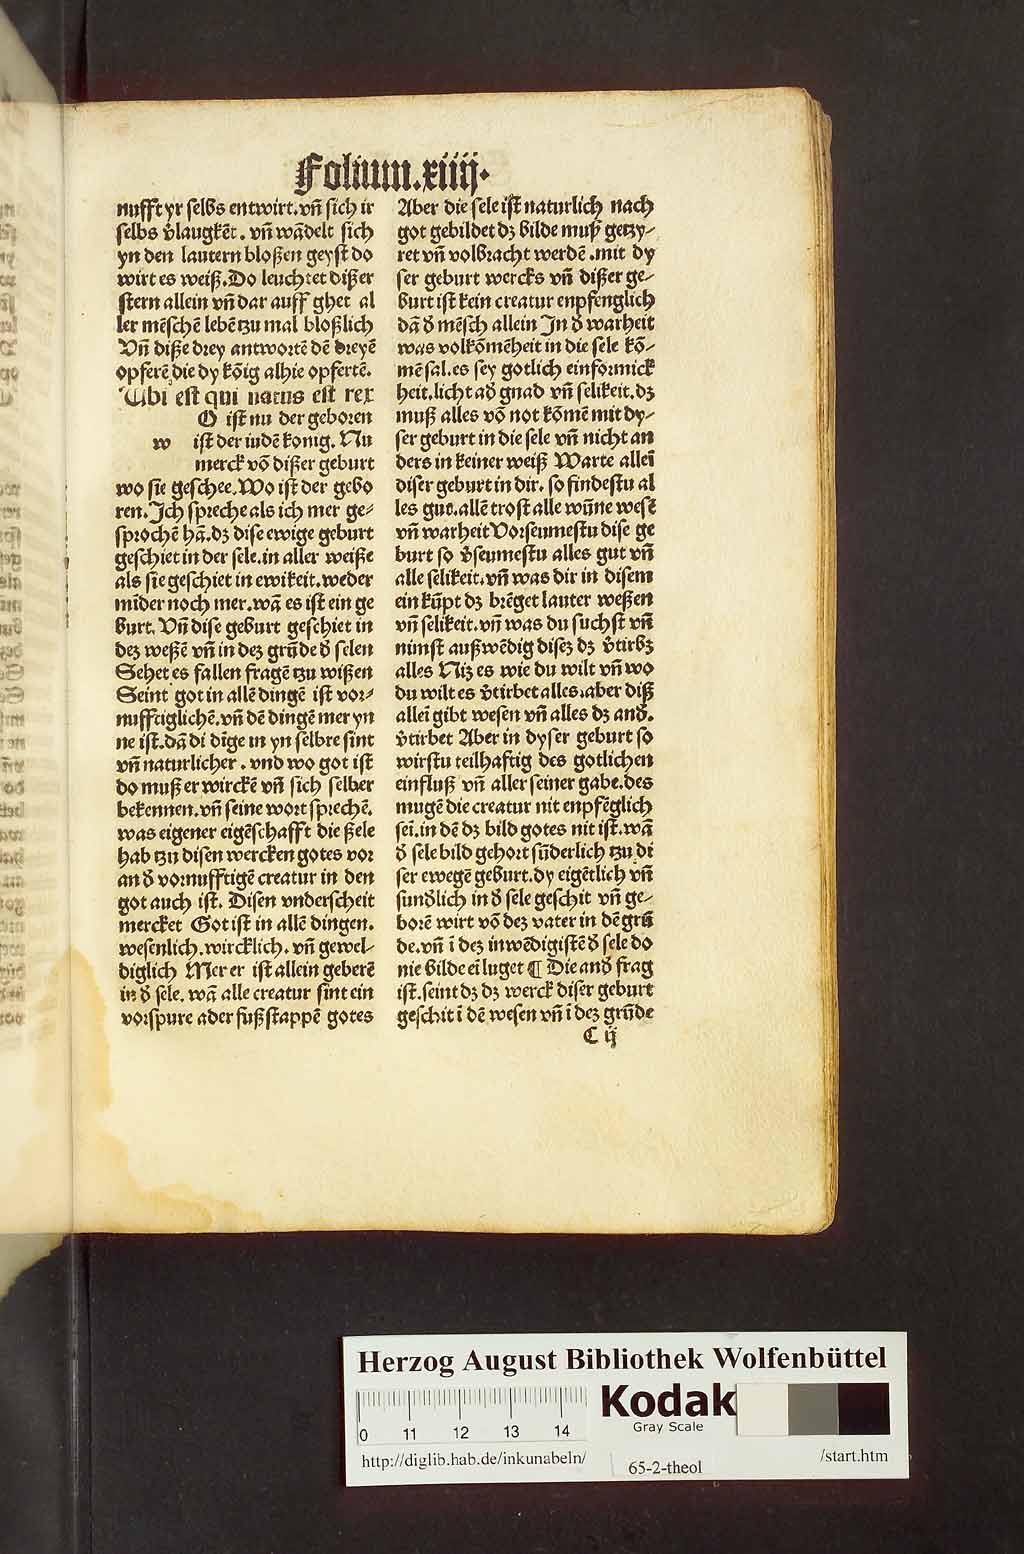 Folium.xiiij.
nufft yr selbs entwirt.vn̄ sich ir
selbs v̓laugkēt. vn̄ wādelt sich
yn den lautern bloßen geyst do
wirt es weiß.Do leuchtet dißer
stern allein vn̄ dar auff ghet al
ler mēschē lebē tzu mal bloßlich
Vn̄ diße drey antwortē dē dreyē
opferē die dy kōig alhie opfertē.
Ubi est qui natus est rex
O ist nu der geboren
w ist der iudē konig. Nu
merck vō dißer geburt
wo sie geschee.Wo ist der gebo
ren.Ich spreche als ich mer ge⸗
sprochē hā.dz dise ewige geburt
geschiet in der sele.in aller weiße
als sie geschiet in ewikeit.weder
mīder noch mer.wā es ist ein ge
burt.Vn̄ dise geburt geschiet in
dez weßē vn̄ in dez grūde d̓ selen
Sehet es fallen fragē tzu wißen
Seint got in allē dingē ist vor⸗
nufftiglichē.vn̄ dē dingē mer yn
ne ist.dā di dīge in yn selbre sint
vn̄ naturlicher. vnd wo got ist
do muß er wirckē vn̄ sich selber
bekennen.vn̄ seine wort sprechē.
was eigener eigēschafft die ßele
hab tzu disen wercken gotes vor
an d̓ vornufftigē creatur in den
got auch ist. Disen vnderscheit
mercket Got ist in allē dingen.
wesenlich.wircklich. vn̄ gewel⸗
diglich Mer er ist allein geberē
in d̓ sele. wā alle creatur sint ein
vorspure ader fußstappē gotes
Aber die sele ist naturlich nach
got gebildet dz bilde muß getzy⸗
ret vn̄ volbracht werdē.mit dy
ser geburt wercks vn̄ dißer ge⸗
burt ist kein creatur enpfenglich
dā d̓ mēsch allein In d̓ warheit
was volkōmēheit in die sele kō⸗
mē sal.es sey gotlich einformick
heit.licht ad̓ gnad vn̄ selikeit.dz
muß alles vō not kōmē mit dy⸗
ser geburt in die sele vn̄ nicht an
ders in keiner weiß Warte alleī
diser geburt in dir. so findestu al
les gut.allē trost alle wūne wesē
vn̄ warheit Vorseumestu dise ge
burt so v̓seumestu alles gut vn̄
alle selikeit.vn̄ was dir in disem
ein kūpt dz brēget lauter weßen
vn̄ selikeit.vn̄ was du suchst vn̄
nimst außwēdig disez dz v̓tirbz
alles Niz es wie du wilt vn̄ wo
du wilt es v̓tirbet alles.aber diß
alleī gibt wesen vn̄ alles dz and̓.
v̓tirbet Aber in dyser geburt so
wirstu teilhaftig des gotlichen
einfluß vn̄ aller seiner gabe.des
mugē die creatur nit enpfēglich
seī.in dē dz bild gotes nit ist.wā
d̓ sele bild gehort sūderlich tzu di
ser ewegē geburt.dy eigētlich vn̄
sund̓lich in d̓ sele geschit vn̄ ge⸗
borē wirt vō dez vater in dē grū
de.vn̄ ī dez inwēdigistē d̓ sele do
nie bilde eī luget ¶ Die and̓ frag
ist.seint dz dz werck diser geburt
geschit ī dē wesen vn̄ ī dez grūde
C ij
Herzog August Bibliothek Wolfenbüttel
0 11 12 13 14
Kodak
Gray Scale
http://diglib.hab.de/inkunabeln/ 65-2-theol /start.htm